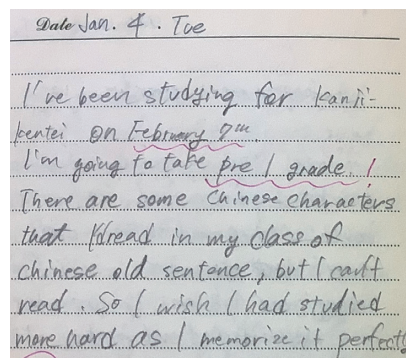 Date Jan. 4. Tue
I've been studying for kanji-
kentei on February 7th
I'm going to take pre 1 grade. !
There are some Chinese characters
that I read in my class of
chinese old sentence, but I can't
read. So I wish I had studied
more hard as I memorize it perfectly